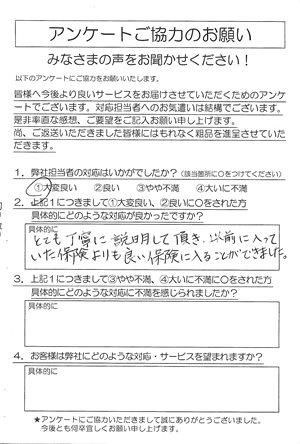 アンケートご協力のお願い
みなさまの声をお聞かせください!
以下のアンケートにご協力をお願いいたします。
皆様へ今後より良いサービスをお届けさせていただくためのアンケ
ートでございます。対応担当者へのお気遣いは結構でございます。
是非率直な感想、ご要望をご記入お願い申し上げます。
尚、ご返送いただきました皆様にはもれなく粗品を進呈させていた
だきます。
1.弊社担当者の対応はいかがでしたか?(該当箇所に○をつけてください)
①大変良い ②良い ③やや不満 ④大いに不満
2.上記1につきまして①大変良い、②良いに○をされた方
具体的にどのような対応が良かったですか?
具体的に
とても丁寧に説明して頂き、以前に入って
いた保険よりも良い保険に入ることができました。
3.上記1につきまして③やや不満、④大いに不満に○をされた方
具体的にどのような対応に不満を感じられましたか?
具体的に
4.お客様は弊社にどのような対応・サービスを望まれますか?
具体的に
★アンケートにご協力いただきまして誠にありがとうございました。
今後とも何卒宜しくお願い申し上げます。